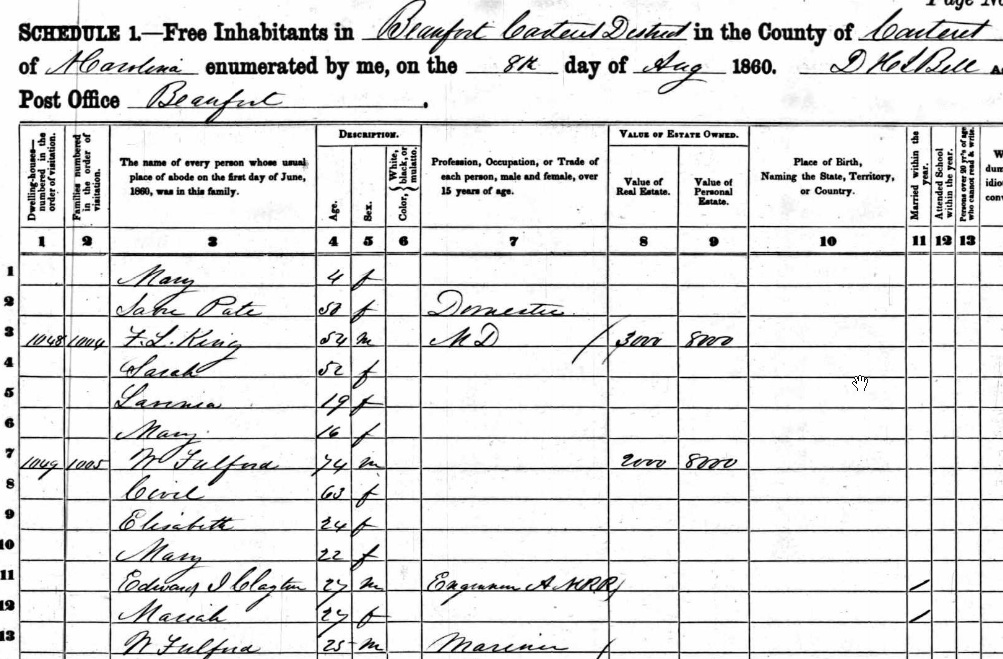 Page No
SCHEDULE 1.—Free Inhabitants in Beaufort Carteret District in the County of Carteret
of N Carolina enumerated by me, on the 8th day of Aug 1860. D H L Bell
Post Office Beaufort.
Dwelling-houses—numbered in the order of visitation. Families numbered in the order of visitation. The name of every person whose usual place of abode on the first day of June, 1860, was in this family. DESCRIPTION. Age. Sex. Color, { White, black, or mulatto. Profession, Occupation, or Trade of each person, male and female, over 15 years of age. VALUE OF ESTATE OWNED. Value of Real Estate. Value of Personal Estate. Place of Birth, Naming the State, Territory, or Country. Married within the year. Attended School within the year. Persons over 20 y'rs of age who cannot read & write.
1 2 3 4 5 6 7 8 9 10 11 12 13
1 Mary 4 f
2 Pate 50 f Domestic
3 1048 1004 F. L. King 54 m M D / 3000 8000
4 Sarah 52 f
5 Lavinia 19 f
6 Mary 16 f
7 1049 1005 W Fulford 74 m 2000 8000
8 Civil 63 f
9 Elisabeth 24 f
10 Mary 22 f
11 Edward J Clayton 27 m Engineer A NCRR / /
12 Mariah 27 f /
13 W Fulford 25 m Mariner /